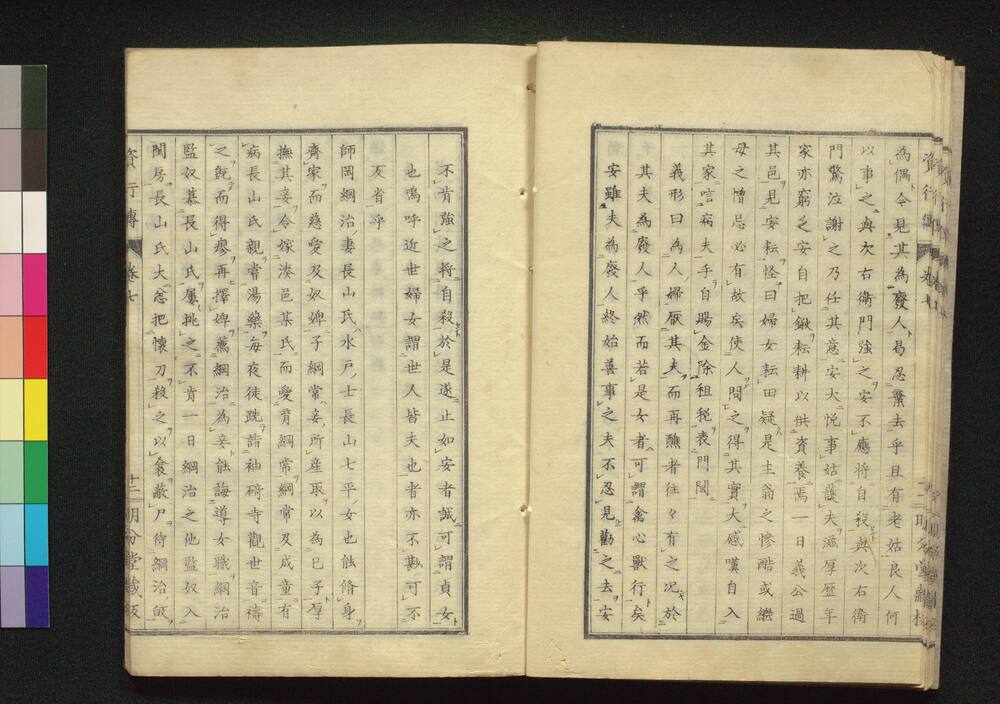 為偶今見其為廢人曷忍棄去乎且有老姑良人何
以事之與次右衛門強之安不應將自殺與次右衛
門驚泣謝之乃任其意安大悅事姑護夫滋厚歷年
家亦窮乏安自把鍬耘耕以供資養焉一日義公過
其邑見安耘怪曰婦女耘田疑是主翁之慘酷或繼
母之憎忌必有故矣使人問之得其實大感嘆自入
其家唁病夫手自賜金除租稅表門閭
義形曰為人婦厭其夫而再醮者往々有之况於
其夫為廢人乎然而若是女者可謂禽心獸行矣
安雖夫為廢人終始善事之夫不忍見勸之去安
不肯強之將自殺於是遂止如安者誠可謂貞女
也嗚呼近世婦女謂世人皆夫也者亦不尠可不
反省乎
師岡綱治妻長山氏水戶士長山七平女也能脩身
齊家而慈愛及奴婢子綱常妾所產取以為己子厚
撫其妾令嫁湊邑某氏而愛育綱常綱常及成童有
病長山氏親嘗湯藥每夜徒跣詣袖碕寺觀世音禱
之既而得瘳再擇婢薦綱治為妾能誨導女職綱治
監奴慕長山氏屢挑之不肯一日綱治之他監奴入
閨房長山氏大怒把懷刀殺之以衾蔽尸待綱治皈
資行傳 卷七 十二 明分堂藏版